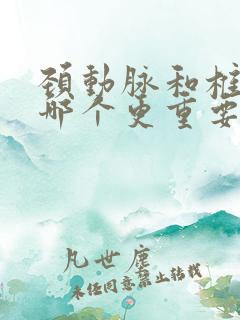 頚動脉和柱
哪个更重要
凡世塵
未经同意禁止转载